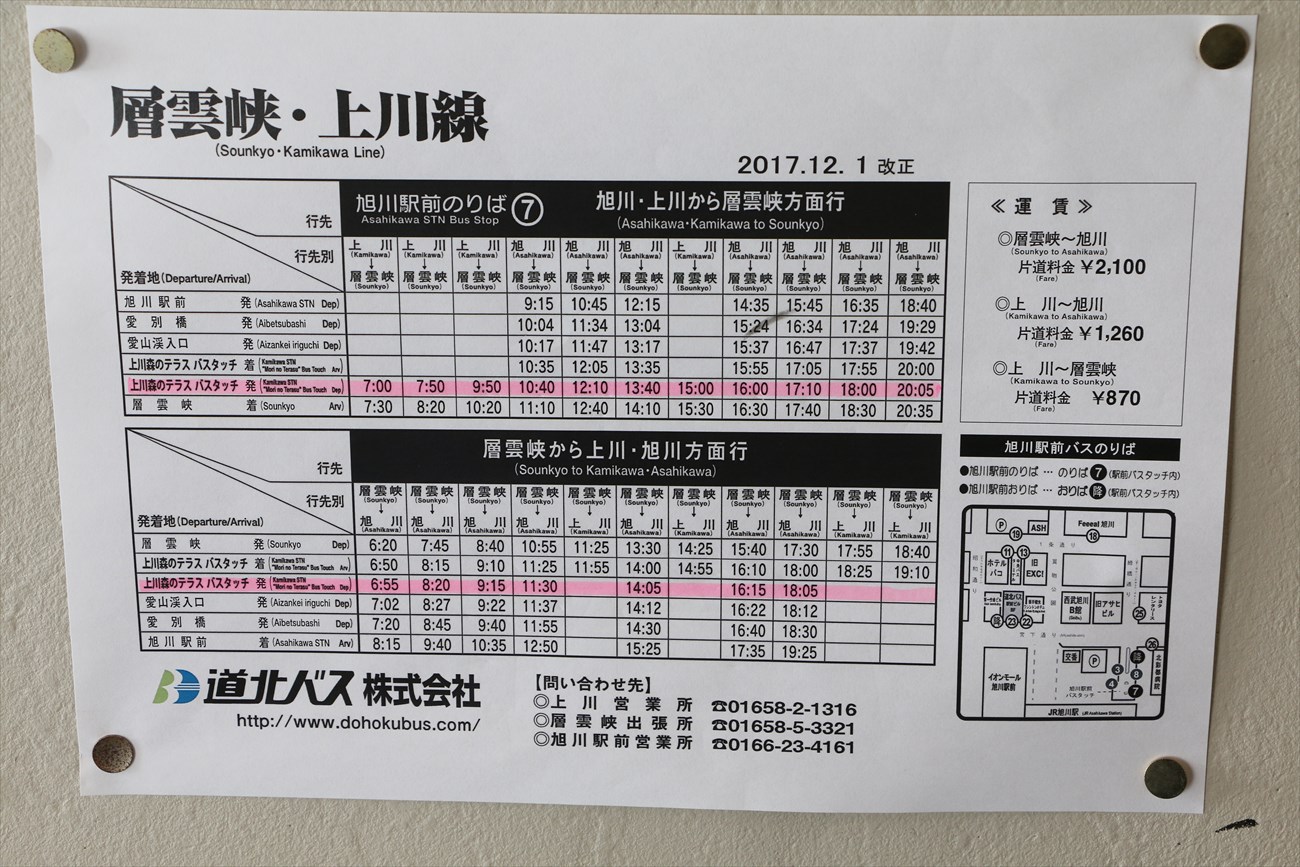 層雲峡・上川線
(Sounkyo・Kamikawa Line)
2017.12. 1 改正
行先 旭川駅前のりば ⑦ 旭川・上川から層雲峡方面行
Asahikawa STN Bus Stop (Asahikawa・Kamikawa to Sounkyo)
行先別 上川 上川 上川 旭川 旭川 旭川 上川 旭川 旭川 旭川 旭川
(Kamikawa) (Kamikawa) (Kamikawa) (Asahikawa) (Asahikawa) (Asahikawa) (Kamikawa) (Asahikawa) (Asahikawa) (Asahikawa) (Asahikawa)
↓ ↓ ↓ ↓ ↓ ↓ ↓ ↓ ↓ ↓ ↓
発着地(Departure/Arrival) 層雲峡 層雲峡 層雲峡 層雲峡 層雲峡 層雲峡 層雲峡 層雲峡 層雲峡 層雲峡 層雲峡
(Sounkyo) (Sounkyo) (Sounkyo) (Sounkyo) (Sounkyo) (Sounkyo) (Sounkyo) (Sounkyo) (Sounkyo) (Sounkyo) (Sounkyo)
旭川駅前 発 (Asahikawa STN Dep) 9:15 10:45 12:15 14:35 15:45 16:35 18:40
愛別橋 発 (Aibetsubashi Dep) 10:04 11:34 13:04 15:24 16:34 17:24 19:29
愛山渓入口 発 (Aizankei iriguchi Dep) 10:17 11:47 13:17 15:37 16:47 17:37 19:42
上川森のテラス バスタッチ 着 (Kamikawa STN "Mori no Terasu" Bus Touch Arv) 10:35 12:05 13:35 15:55 17:05 17:55 20:00
上川森のテラス バスタッチ 発 (Kamikawa STN "Mori no Terasu" Bus Touch Dep) 7:00 7:50 9:50 10:40 12:10 13:40 15:00 16:00 17:10 18:00 20:05
層雲峡 着 (Sounkyo Arv) 7:30 8:20 10:20 11:10 12:40 14:10 15:30 16:30 17:40 18:30 20:35
行先 層雲峡から上川・旭川方面行
(Sounkyo to Kamikawa・Asahikawa)
行先別 層雲峡 層雲峡 層雲峡 層雲峡 層雲峡 層雲峡 層雲峡 層雲峡 層雲峡 層雲峡 層雲峡
(Sounkyo) (Sounkyo) (Sounkyo) (Sounkyo) (Sounkyo) (Sounkyo) (Sounkyo) (Sounkyo) (Sounkyo) (Sounkyo) (Sounkyo)
↓ ↓ ↓ ↓ ↓ ↓ ↓ ↓ ↓ ↓ ↓
発着地(Departure/Arrival) 旭川 旭川 旭川 旭川 上川 旭川 上川 旭川 旭川 上川 上川
(Asahikawa) (Asahikawa) (Asahikawa) (Asahikawa) (Kamikawa) (Asahikawa) (Kamikawa) (Asahikawa) (Asahikawa) (Kamikawa) (Kamikawa)
層雲峡 発 (Sounkyo Dep) 6:20 7:45 8:40 10:55 11:25 13:30 14:25 15:40 17:30 17:55 18:40
上川森のテラス バスタッチ 着 (Kamikawa STN "Mori no Terasu" Bus Touch Arv) 6:50 8:15 9:10 11:25 11:55 14:00 14:55 16:10 18:00 18:25 19:10
上川森のテラス バスタッチ 発 (Kamikawa STN "Mori no Terasu" Bus Touch Dep) 6:55 8:20 9:15 11:30 14:05 16:15 18:05
愛山渓入口 発 (Aizankei iriguchi Dep) 7:02 8:27 9:22 11:37 14:12 16:22 18:12
愛別橋 発 (Aibetsubashi Dep) 7:20 8:45 9:40 11:55 14:30 16:40 18:30
旭川駅前 着 (Asahikawa STN Arv) 8:15 9:40 10:35 12:50 15:25 17:35 19:25
道北バス株式会社
http://www.dohokubus.com/
【問い合わせ先】
◎上川営業所 ☎01658-2-1316
◎層雲峡出張所 ☎01658-5-3321
◎旭川駅前営業所 ☎0166-23-4161
≪運賃≫
◎層雲峡～旭川
(Sounkyo to Asahikawa)
片道料金 ¥2,100
(Fare)
◎上川～旭川
(Kamikawa to Asahikawa)
片道料金 ¥1,260
(Fare)
◎上川～層雲峡
(Kamikawa to Sounkyo)
片道料金 ¥870
(Fare)
旭川駅前バスのりば
●旭川駅前のりば … のりば ⑦ (駅前バスタッチ内)
●旭川駅前おりば … おりば 降 (駅前バスタッチ内)
Ⓟ ⑲ ASH Feeeal 旭川 ⑱
1条通り
⑪ ⑬
ホテルパコ 旧EXC!
西武旭川B館 旧アサヒビル
㉓ ㉒ ㉕
宮下通り
㉖
交番 Ⓟ ③ ④ ⑧ ⑦
イオンモール旭川駅前
旭川駅前バスタッチ
JR旭川駅 (JR Asahikawa Station)